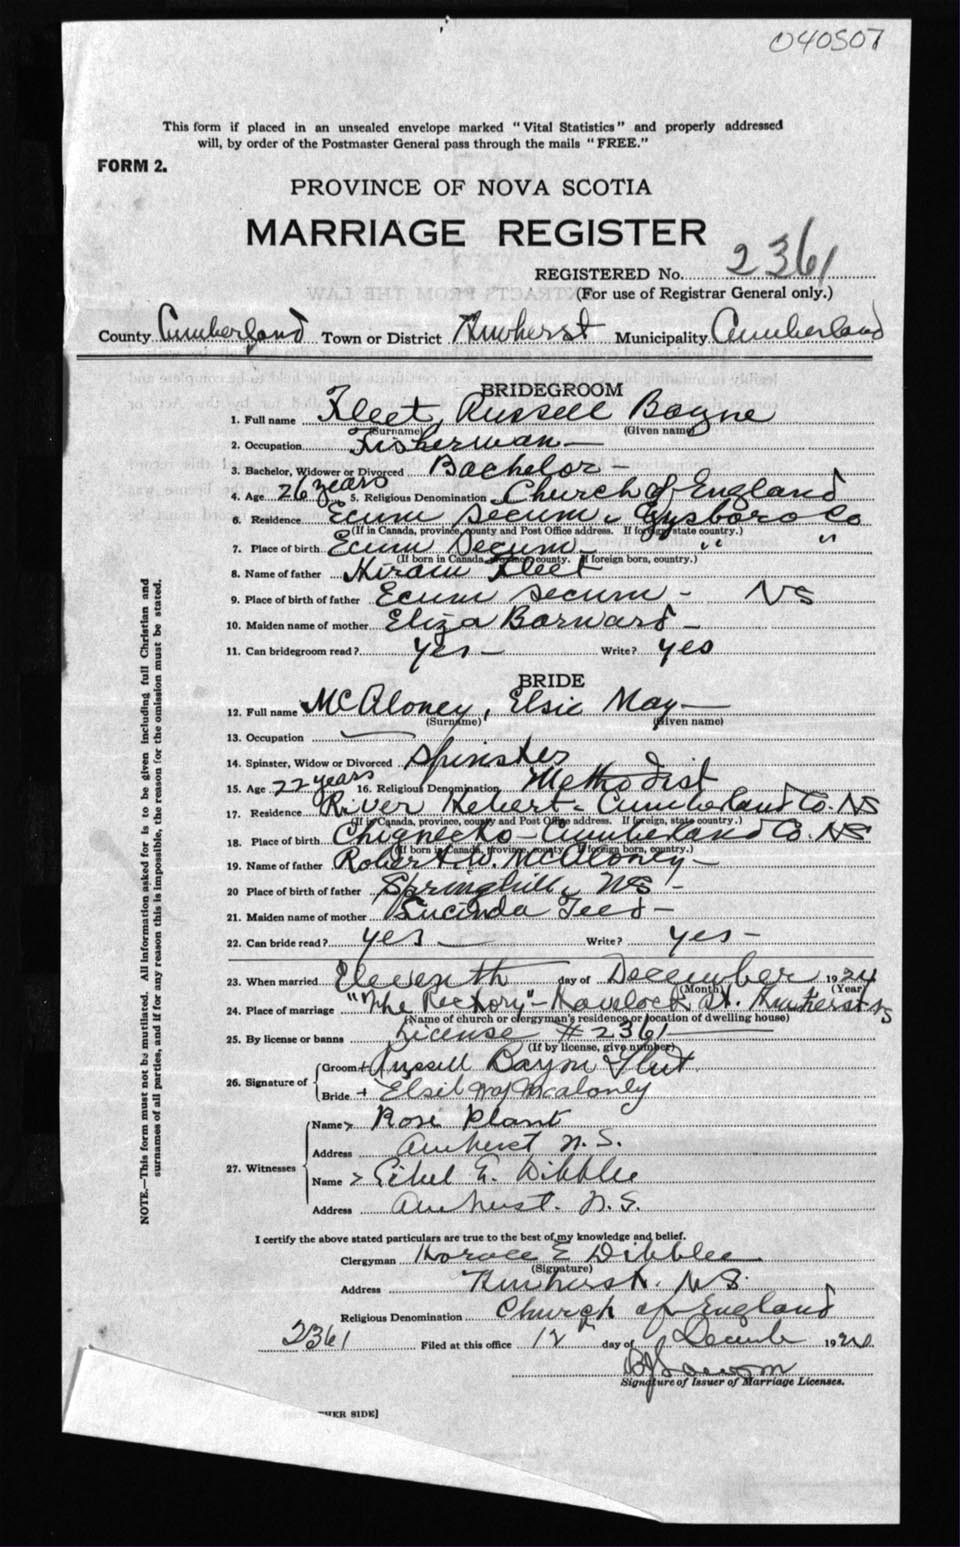 040507
This form if placed in an unsealed envelope marked "Vital Statistics" and properly addressed
will, by order of the Postmaster General pass through the mails "FREE."
FORM 2.
PROVINCE OF NOVA SCOTIA
MARRIAGE REGISTER
REGISTERED No. 2361
(For use of Registrar General only.)
County Cumberland Town or District Amherst Municipality Cumberland
BRIDEGROOM
1. Full name Fleet, Russell Bayne
(Surname) (Given name)
2. Occupation Fisherman —
3. Bachelor, Widower or Divorced Bachelor —
4. Age 26 years 5. Religious Denomination Church of England
6. Residence Ecum Secum, Gysboro Co
(If in Canada, province, county and Post Office address. If foreign, state country.)
7. Place of birth Ecum Secum — " "
(If born in Canada, province, county. If foreign born, country.)
8. Name of father Hiram Fleet
9. Place of birth of father Ecum Secum — NS
10. Maiden name of mother Eliza Barnard —
11. Can bridegroom read? Yes — Write? Yes
BRIDE
12. Full name McAloney, Elsie May —
(Surname) (Given name)
13. Occupation —
14. Spinster, Widow or Divorced Spinster
15. Age 22 years 16. Religious Denomination Methodist
17. Residence River Hebert — Cumberland Co. NS
(If in Canada, province, county and Post Office address. If foreign, state country.)
18. Place of birth Chignecto — Cumberland Co. NS
(If born in Canada, province, county. If foreign born, country.)
19. Name of father Robert W. McAloney —
20 Place of birth of father Springhill, NS —
21. Maiden name of mother Lucinda Teed —
22. Can bride read? Yes — Write? Yes —
23. When married Eleventh day of December 1924
(Month) (Year)
24. Place of marriage "The Rectory" — Havelock St. Amherst NS
(Name of church or clergyman's residence or location of dwelling house)
25. By license or banns License # 2361
(If by license, give number)
26. Signature of Groom + Russell Bayon Fleet
Bride + Elsie May Mcaloney
27. Witnesses Name > Rose Plant
Address Amherst N. S.
Name > Ethel E. Dibblee
Address Amherst. N. S.
I certify the above stated particulars are true to the best of my knowledge and belief.
Clergyman Horace E Dibblee
(Signature)
Address Amherst. NS.
Religious Denomination Church of England
2361 Filed at this office 12 day of Decemb 1924
Signature of Issuer of Marriage Licenses.
HER SIDE]
NOTE.—This form must not be mutilated. All information asked for is to be given including full Christian and
surnames of all parties, and if for any reason this is impossible, the reason for the omission must be stated.